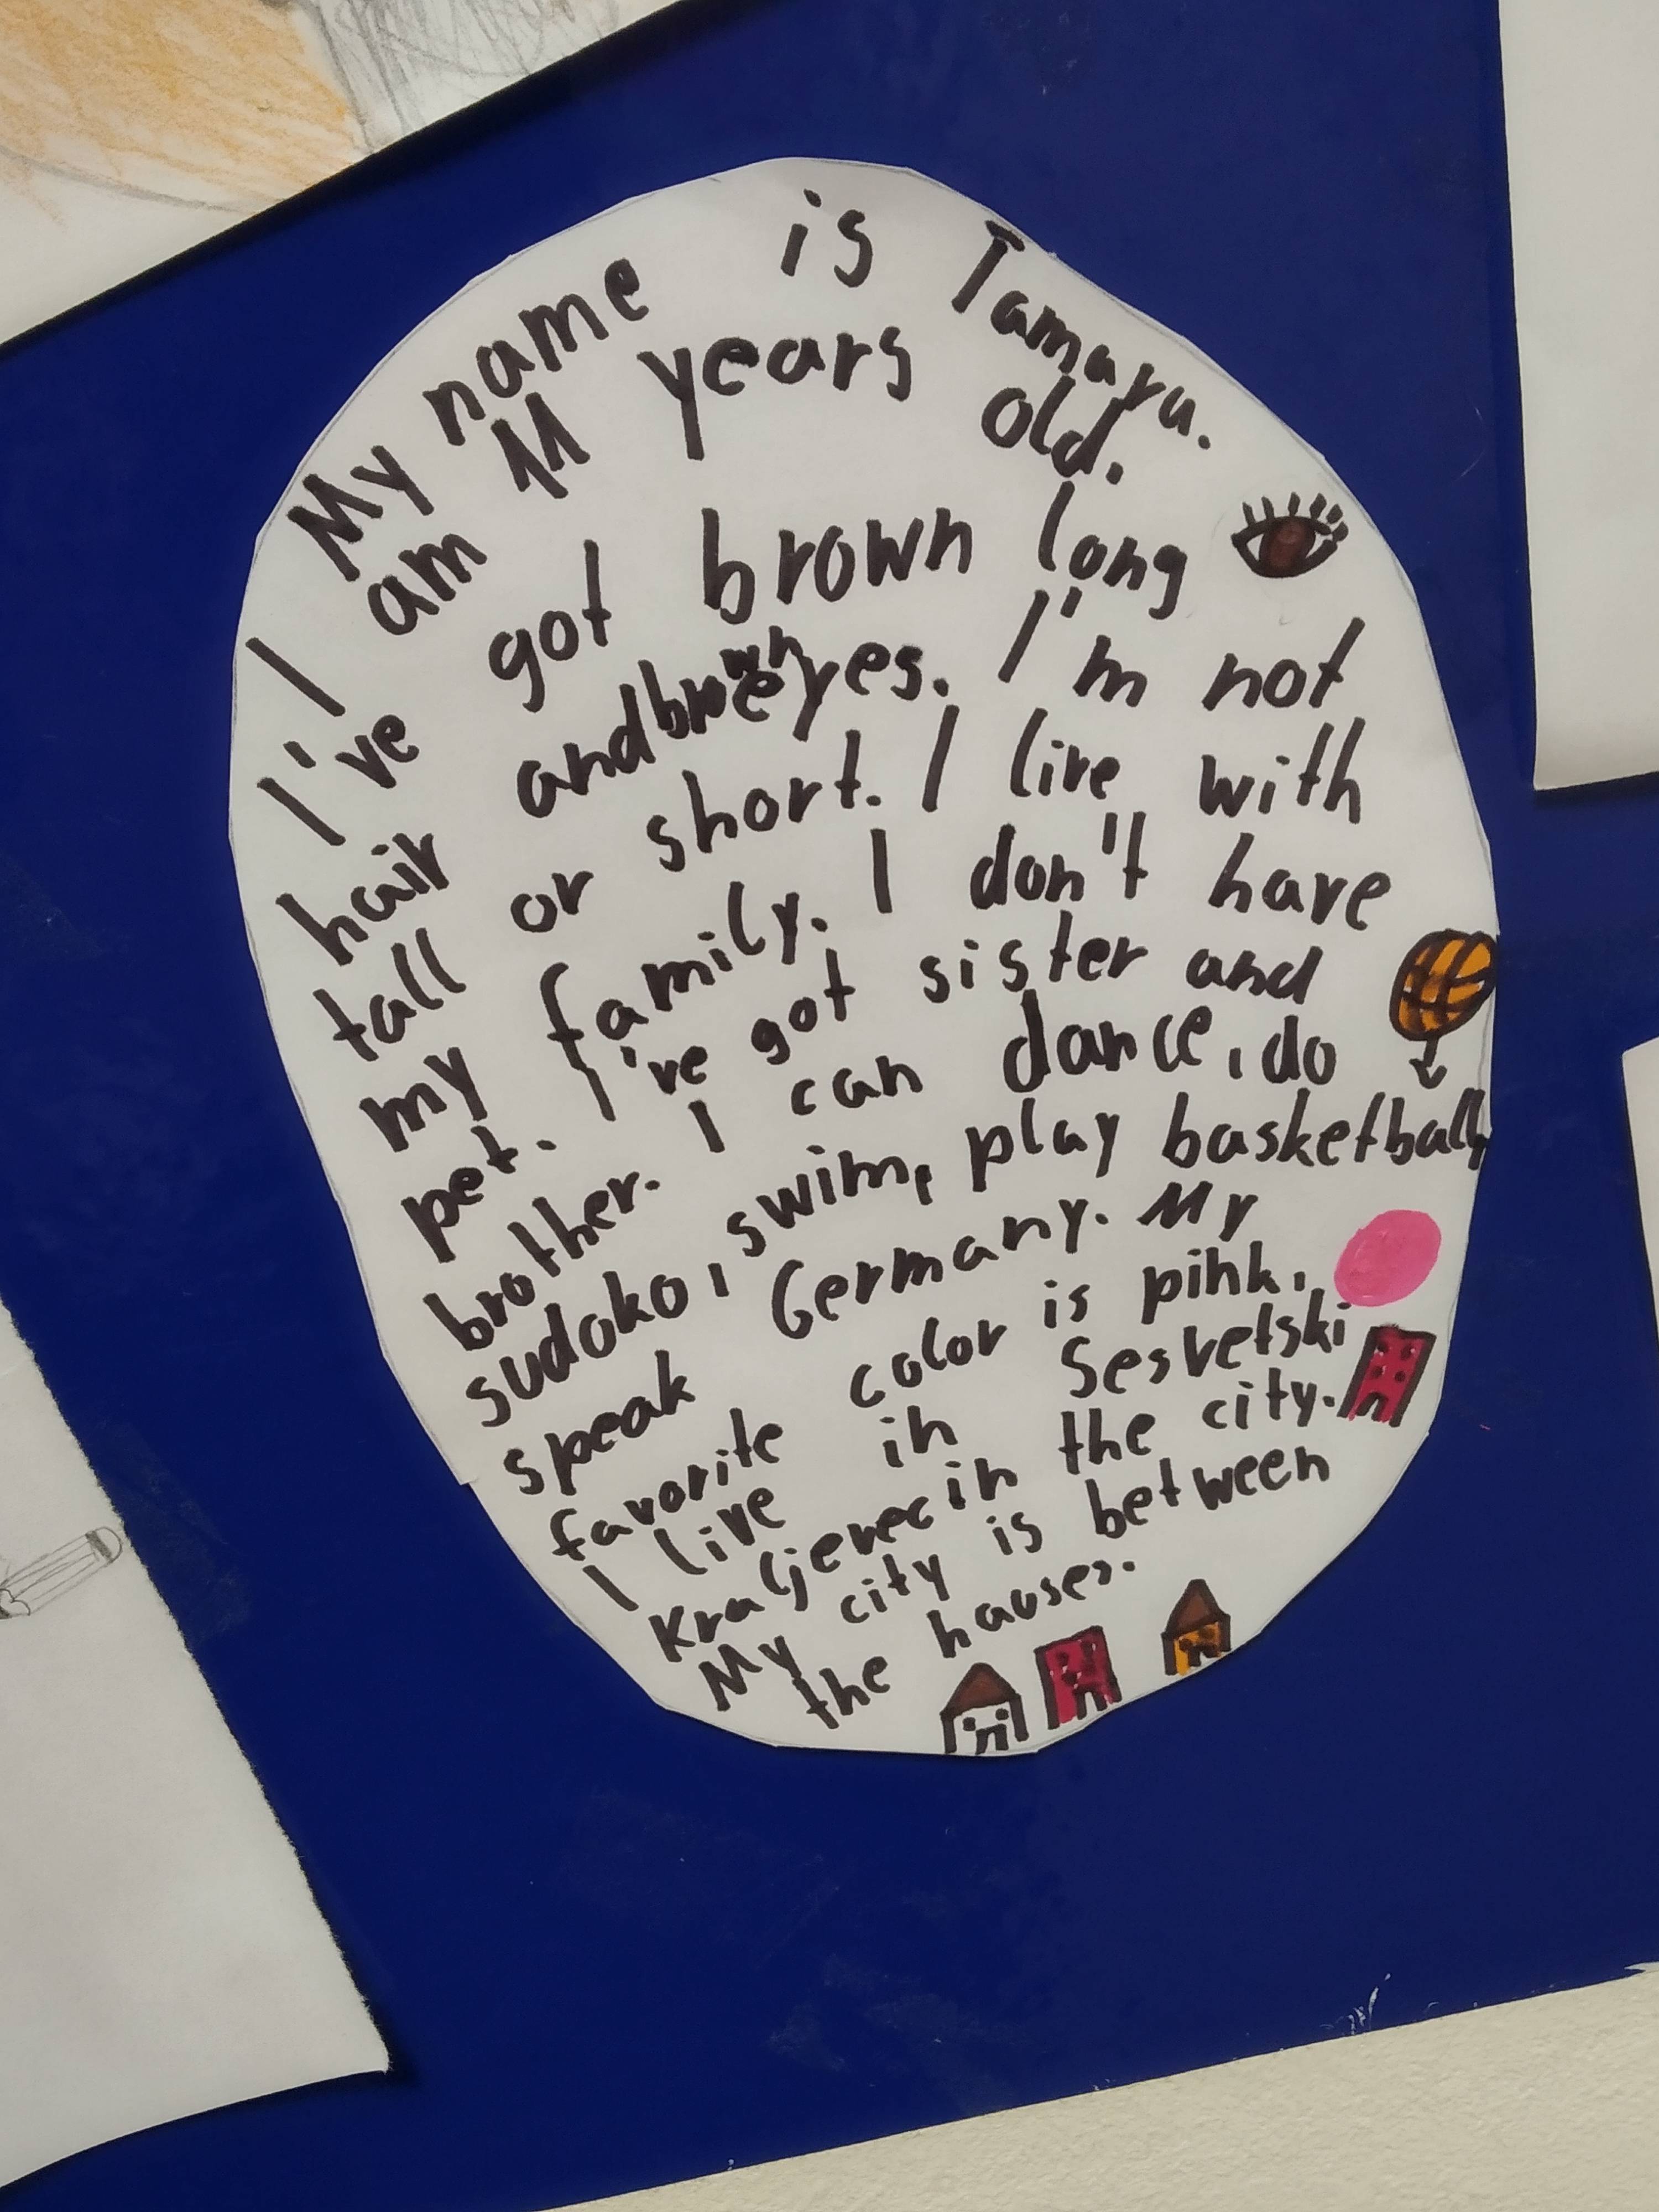 My name is Tamara.
I am 11 years old.
I've got brown long
hair and brown eyes. I'm not
tall or short. I live with
my family. I don't have
pet. I've got sister and
brother. I can dance, do
sudoko, swim, play basketball,
speak Germany. My
favorite color is pink.
I live in Sesvetski
Kraljevec in the city.
My city is between
the hauses.